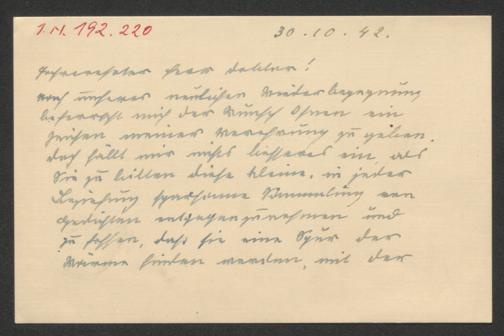 I.N. 192.220
30.10.42.
Sehr verehrter Herr Doktor!
nach unserer neulichen Wiederbegegnung
beherrscht mich der Wunsch Ihnen ein
Zeichen meiner Verehrung zu geben.
doch fällt mir nichts besseres ein, als
Sie zu bitten diese kleine, in jeder
Beziehung sparsame Sammlung von
Gedichten entgegenzunehmen und
zu hoffen, dass sie eine Spur der
Wärme finden werden, mit der